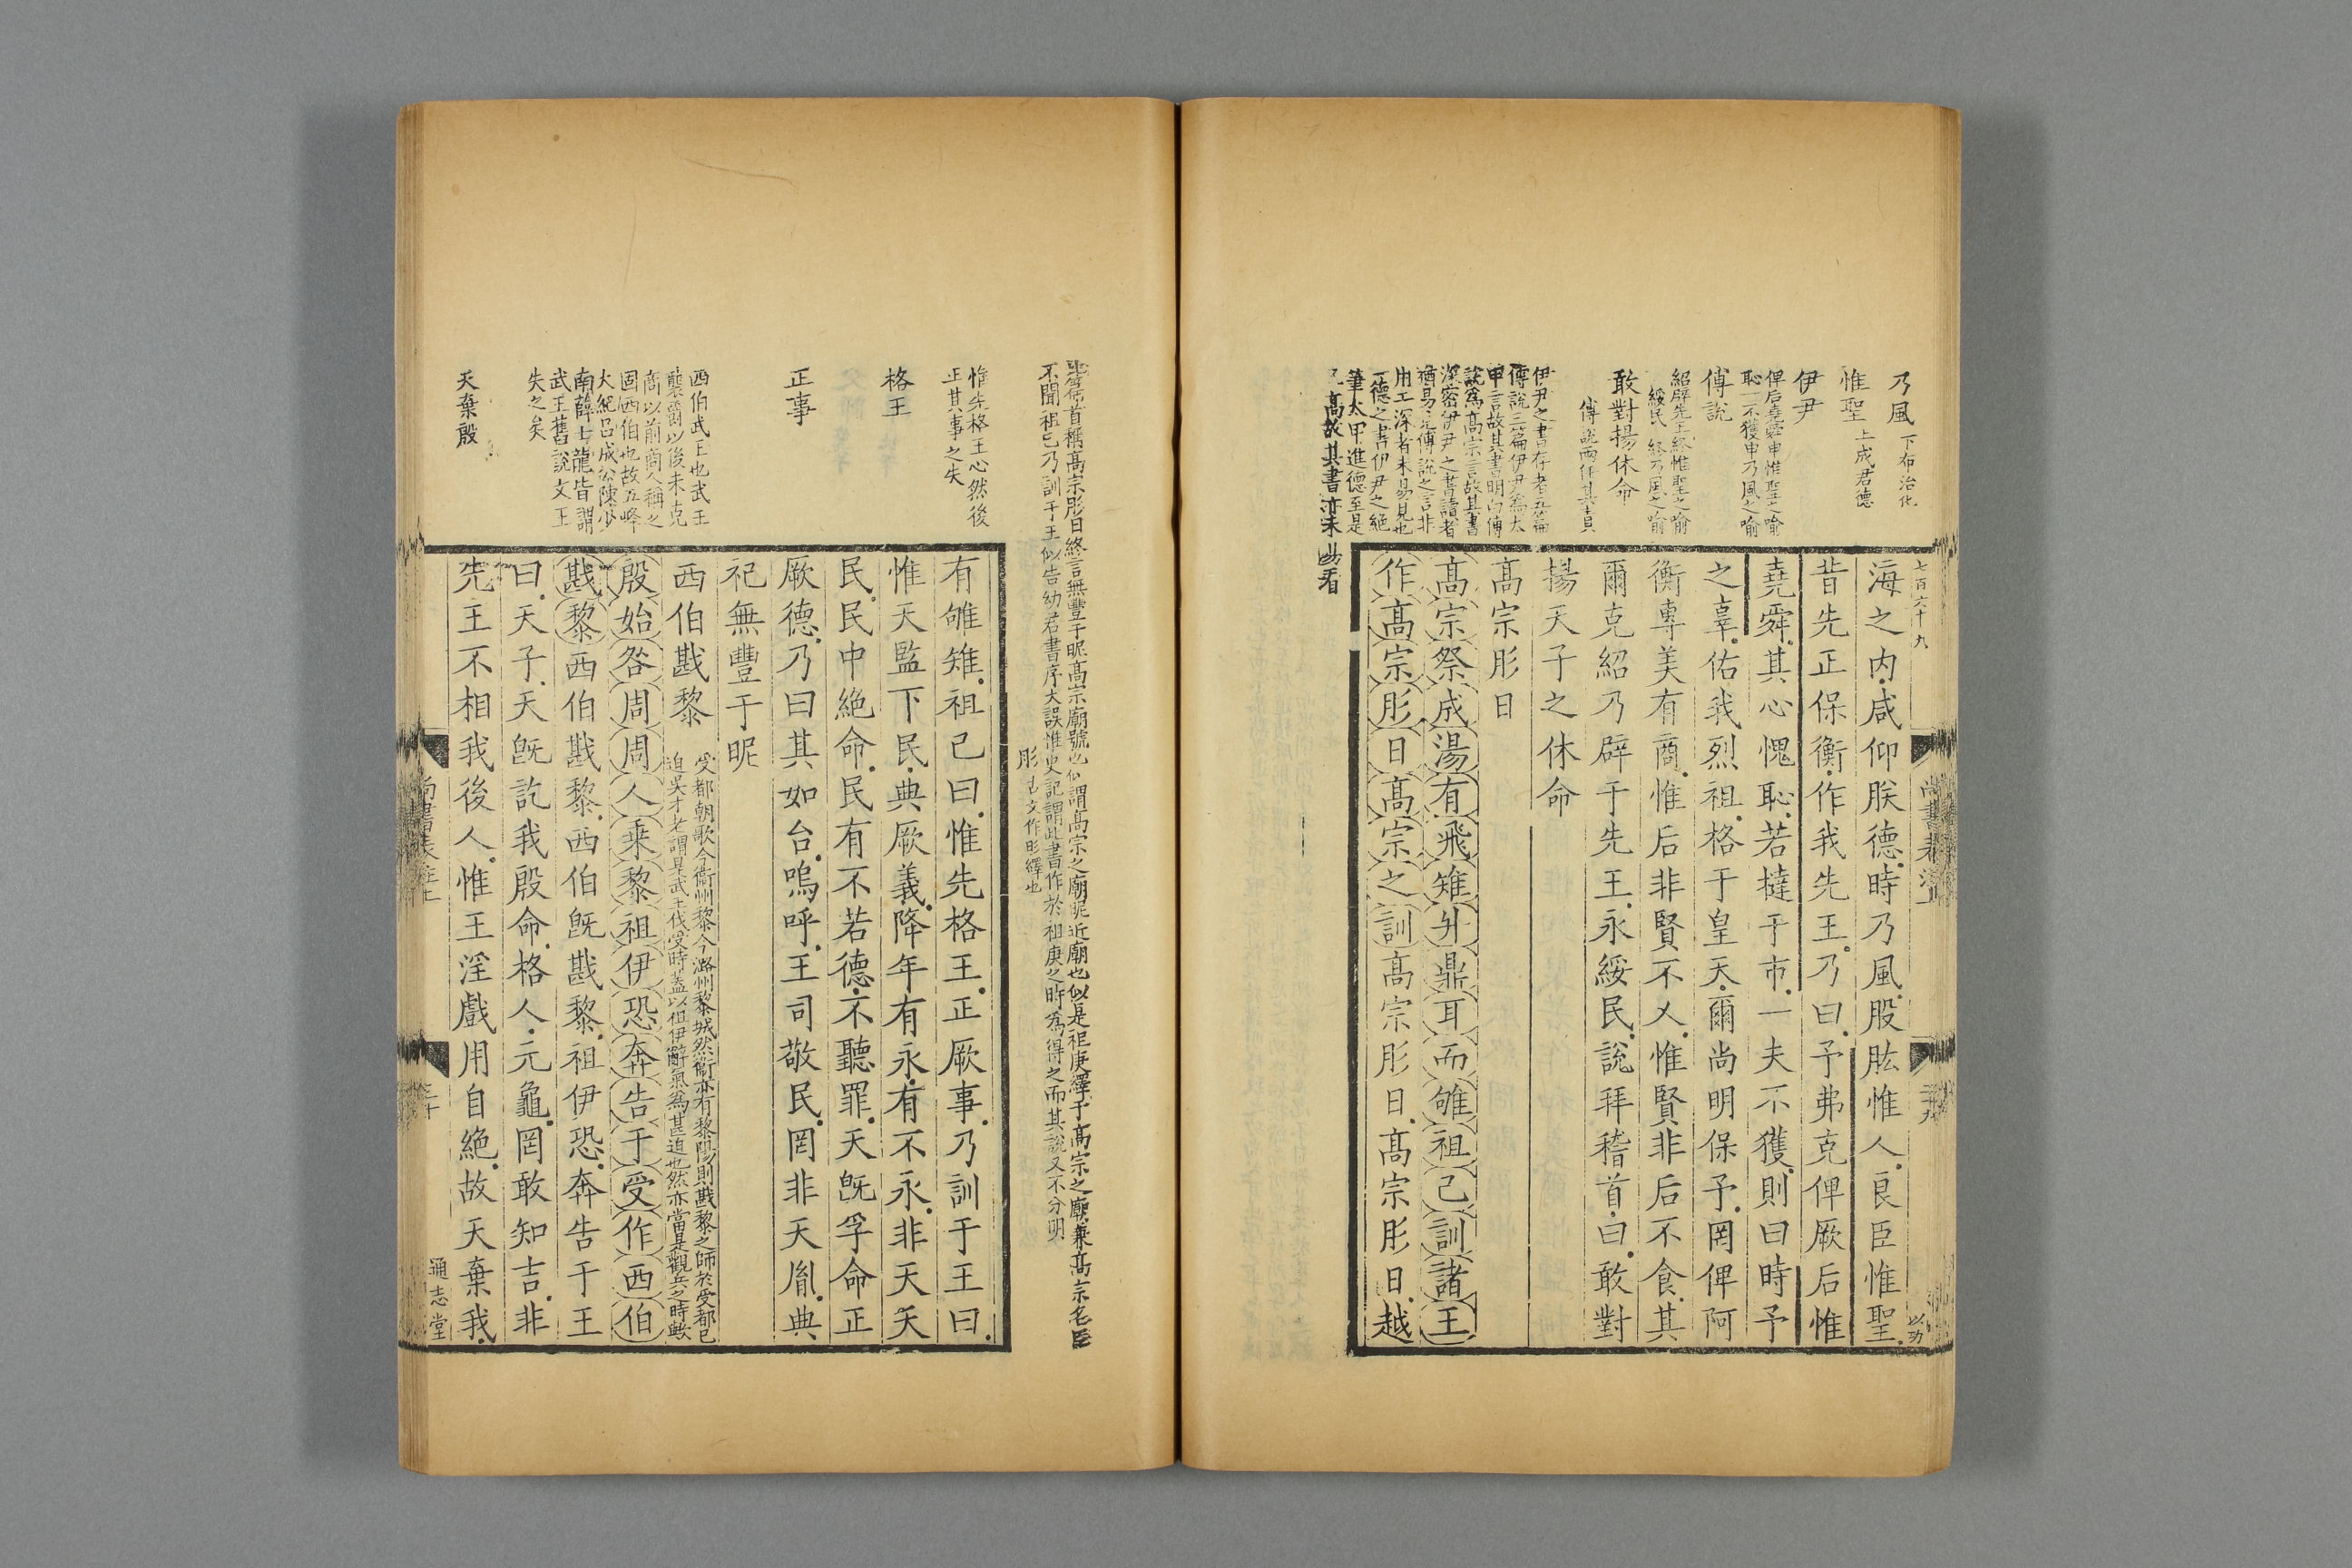 乃風 下布治化
惟聖 上成君德
伊尹
俾后堯舜申惟聖之喻
恥一不獲申乃風之喻
傅說
紹辟先王終惟聖之喻
綏民 終乃風之喻
敢對揚休命
傅說兩任其責
伊尹之書存者五篇
傅說三篇伊尹為太
甲言故其書明白傅
說為高宗言故其書
深密伊尹之書讀者
猶易之傅說之言非
用工深者未易見也
一德之書伊尹之絕
筆太甲進德至是
已高故其書亦未易看
七百六十九
海之内咸仰朕德時乃風股肱惟人良臣惟聖
昔先正保衡作我先王乃曰予弗克俾厥后惟
堯舜其心愧恥若撻于市一夫不獲則曰時予
之辜佑我烈祖格于皇天爾尚明保予罔俾阿
衡專美有商惟后非賢不乂惟賢非后不食其
爾克紹乃辟于先王永綏民說拜稽首曰敢對
揚天子之休命
高宗肜日
高宗祭成湯有飛雉升鼎耳而雊祖己訓諸王
作高宗肜日高宗之訓高宗肜日高宗肜日越
此篇首稱高宗肜日終言無豐于昵高宗廟號也似謂高宗之廟昵近廟也似是祖庚繹于高宗之廟兼高宗名臣
不聞祖己乃訓于王似告幼君書序大誤惟史記謂此書作於祖庚之時為得之而其說又不分明
肜古文作肜繹也
惟先格王心然後
正其事之失
格王
正事
西伯武王也武王
襲爵以後未克
商以前商人稱之
固西伯也故五峰
大紀吕成公陳少
南薛士龍皆謂
武王舊說文王
失之矣
天棄殷
有雊雉祖己曰惟先格王正厥事乃訓于王曰
惟天監下民典厥義降年有永有不永非天夭
民民中絕命民有不若德不聽罪天既孚命正
厥德乃曰其如台嗚呼王司敬民罔非天胤典
祀無豐于昵
西伯戡黎
受都朝歌今衞州黎今潞州黎城然衞亦有黎陽則戡黎之師於受都已
迫吳才老謂是武王伐受時蓋以祖伊辭氣為甚迫也然亦當是觀兵之時歟
殷始咎周周人乘黎祖伊恐奔告于受作西伯
戡黎西伯戡黎西伯既戡黎祖伊恐奔告于王
曰天子天既訖我殷命格人元龜罔敢知吉非
先王不相我後人惟王淫戲用自絕故天棄我
通志堂